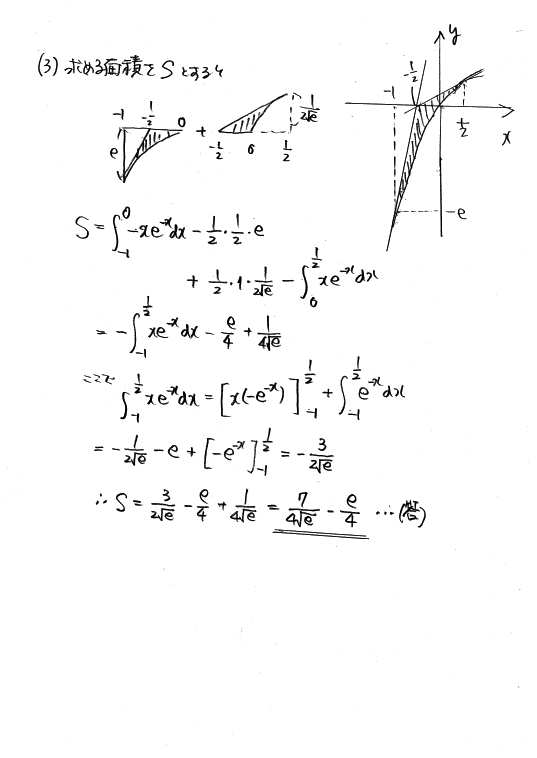 (3) 求める面積をSとすると
-1 -1/2 0 e + -1/2 0 1/2 1/(2√e)
y -1 -1/2 1/2 x -e
S = ∫_{-1}^{0} -xe^{-x}dx - 1/2・1/2・e
+ 1/2・1・1/(2√e) - ∫_{0}^{1/2} xe^{-x}dx
= -∫_{-1}^{1/2} xe^{-x}dx - e/4 + 1/(4√e)
ここで
∫_{-1}^{1/2} xe^{-x}dx = [x(-e^{-x})]_{-1}^{1/2} + ∫_{-1}^{1/2} e^{-x}dx
= -1/(2√e) - e + [-e^{-x}]_{-1}^{1/2} = -3/(2√e)
∴ S = 3/(2√e) - e/4 + 1/(4√e) = 7/(4√e) - e/4 …(答)